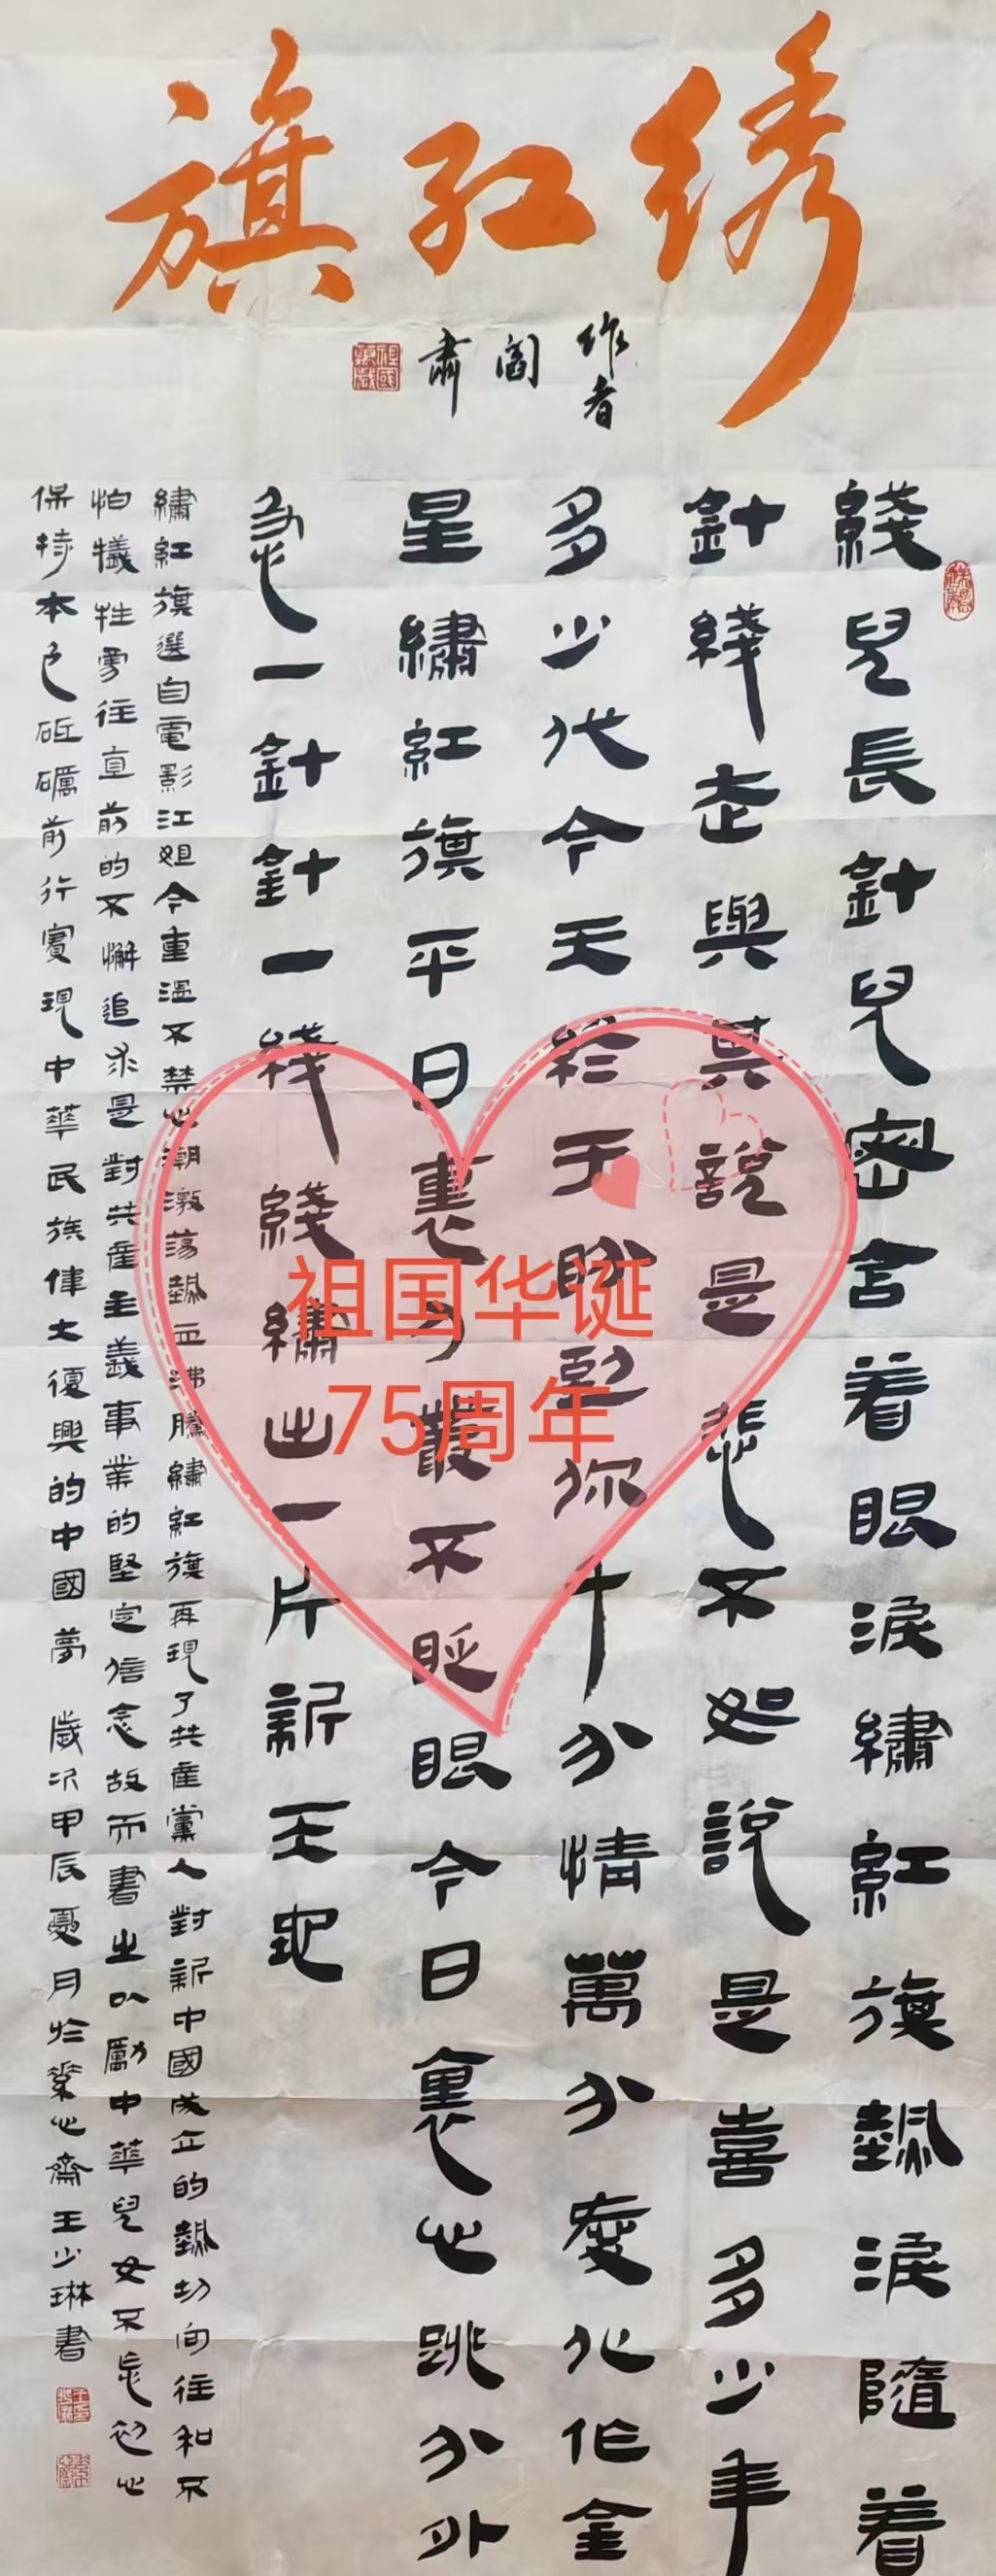 绣红旗
作者閻肅
綫兒長針兒密含着眼淚繡紅旗熱淚隨着
針綫走與其說是悲不如說是喜多少年
多少代今天終于盼到你千分情萬分愛化作金
星繡紅旗平日裏刀叢不眨眼今日裏心跳分外
急一針針一綫綫繡出一片新天地
繡紅旗選自電影江姐今重溫不禁心潮激蕩熱血沸騰繡紅旗再現了共產黨人對新中國成立的熱切向往和不
怕犧牲勇往直前的不懈追求是對共產主義事業的堅定信念故而書之以勵中華兒女不忘初心
保持本色砥礪前行實現中華民族偉大復興的中國夢 歲次甲辰夏月於心齋王少琳書
祖国华诞
75周年